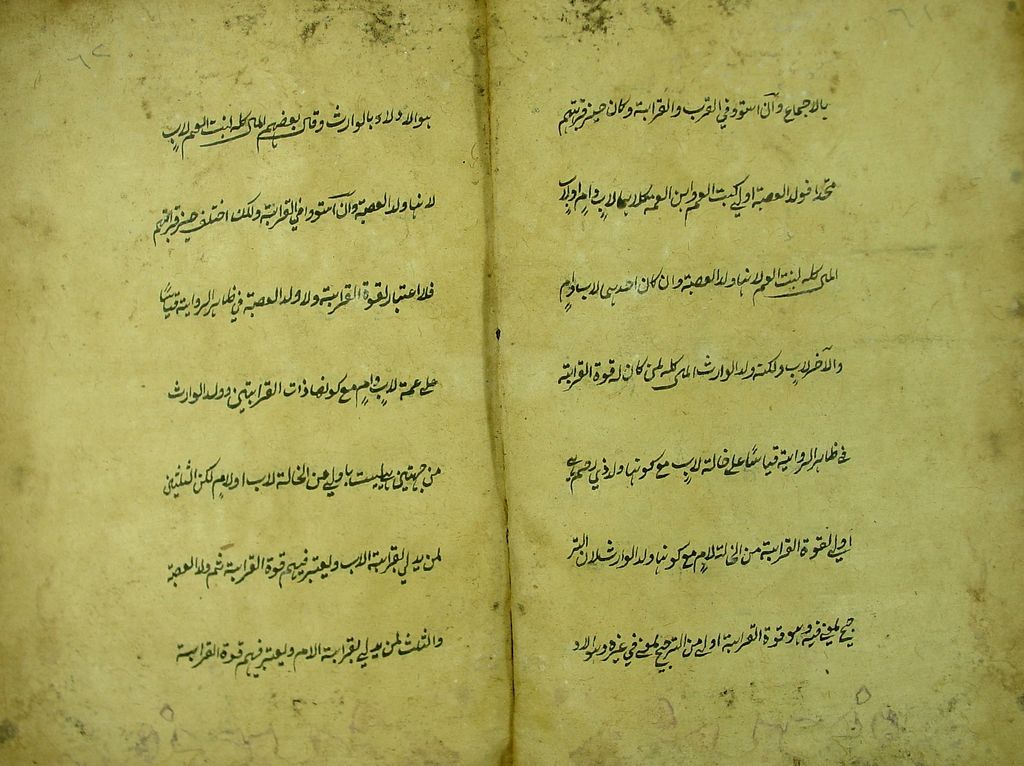 بالاجماع وآن استووفي القرب والقرابة وكان حيز قرابتهم
متحدا فولد العصبة اولى كبنت العم وابن العمة كلاهما لاب وام اولاب
المال كله لبنت العم لانها ولد العصبة وان كان احدهما لاب وام
والآخر لاب ولكنه ولد الوارث المال كله لمن كان له قوة القرابة
في ظاهر الرواية قياسا على خالة لاب مع كونها ولد ذي رحم هي
اولى لقوة القرابة من الخالة لام مع كونها ولد الوارث لان التر
جيح لمعنى فيه وهو قوة القرابة اولى من الترجيح لمعنى في غيره وهو الاد
هو الادلاء بالوارث وقال بعضهم المال كله لبنت العم لاب
لانها ولد العصبة وان استووا في القرابة ولكن اختلف حيز قرابتهم
فلا اعتبار لقوة القرابة ولا ولد العصبة في ظاهر الرواية قياسا
على عمة لاب وام مع كونها ذات القرابتين وولد الوارث
من جهتين ليست باولى من الخالة لاب اولام لكن الثلثين
لمن يدلي بقرابة الاب ويعتبر فيهم قوة القرابة ثم ولد العصبة
والثلث لمن يدلي بقرابة الام ويعتبر فيهم قوة القرابة